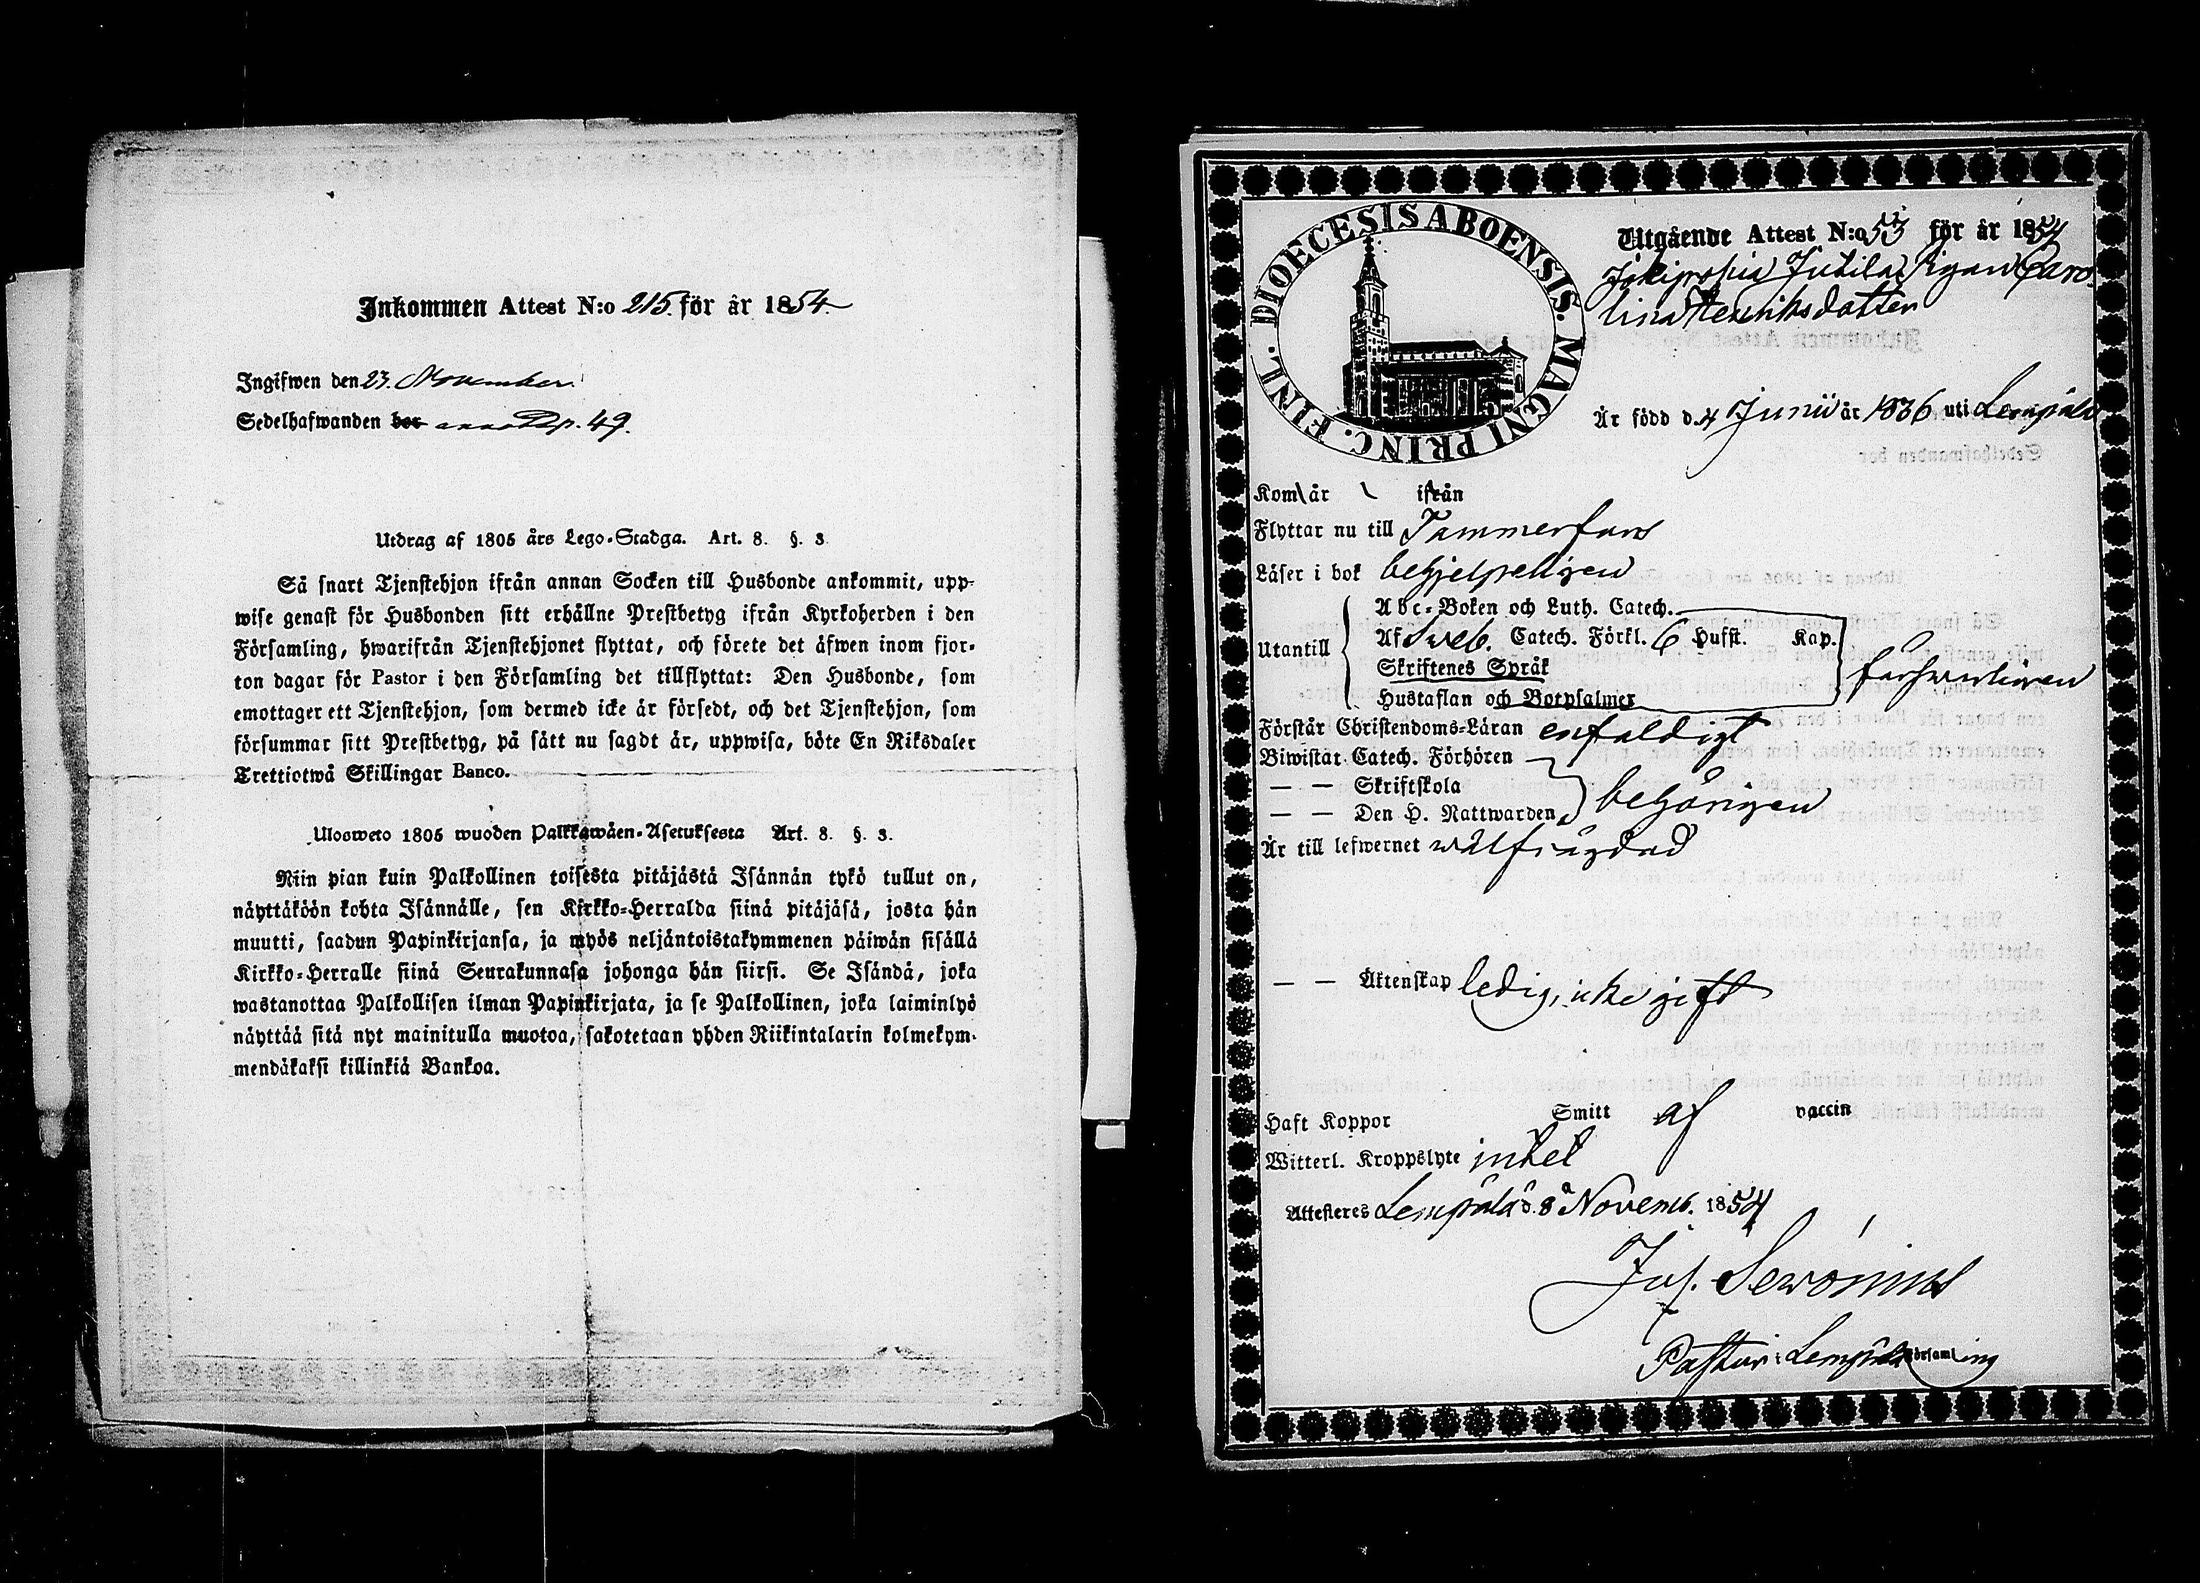 Inkommen Attest N:o 215. för år 1854.
Ingifwen den 23. November.
Sedelhafwanden bor p. 49.
Utdrag af 1805 års Lego-Stadga. Art. 8. §. 3.
Så snart Tjenstehjon ifrån annan Socken till Husbonde ankommit, upp-
wise genast för Husbonden sitt erhållne Prestbetyg ifrån Kyrkoherden i den
Församling, hwarifrån Tjenstehjonet flyttat, och förete det äfwen inom fjor-
ton dagar för Pastor i den Församling det tillflyttat: Den Husbonde, som
emottager ett Tjenstehjon, som dermed icke är försedt, och det Tjenstehjon, som
försummar sitt Prestbetyg, på sätt nu sagdt är, uppwisa, böte En Riksdaler
Trettiotwå Skillingar Banco.
Ulosweto 1805 wuoden Palkkawäen-Asetuksesta Art. 8. §. 3.
Niin pian kuin Palkollinen toisesta pitäjästä Isännän tykö tullut on,
näyttäköön kohta Isännälle, sen Kirkko-Herralda siinä pitäjäsä, josta hän
muutti, saadun Papinkirjansa, ja myös neljäntoistakymmenen päiwän sisällä
Kirkko-Herralle siinä Seurakunnasa johonga hän siirsi. Se Isändä, joka
wastanottaa Palkollisen ilman Papinkirjata, ja se Palkollinen, joka laiminlyö
näyttää sitä nyt mainitulla muotoa, sakotetaan yhden Riikintalarin kolmekym-
mendäkaksi killinkiä Bankoa.
DIOECESIS ABOENSIS. MAGNI PRINC. FINL.
Utgående Attest N:o 53 för år 1854
Jokipohia Jutila Pigan Caro-
lina Henriksdotter
Är född d. 4 Junii år 1836 uti Lempälä
Kom år ifrån
Flyttar nu till Tammerfors
Läser i bok behjelpeligen
Utantill
Abc-Boken och Luth. Catech.
Af Sveb. Catech. Förkl. 6 Hufst. Kap.
Skriftenes Språk
Hustaflan och Botpsalmer
försvarligen
Förstår Christendoms-Läran enfaldigt
Biwistat Catech. Förhören
— — Skriftskola
— — Den H. Nattwarden
behörigen
Är till lefwernet wälfrägdad
— — Äktenskap ledig, icke gift
Haft Koppor Smitt af vaccin
Witterl. Kroppslyte intet
Attesteres Lempälä d. 8 Novemb. 1854
Jos. Servonius
Pastor i Lempälä församling